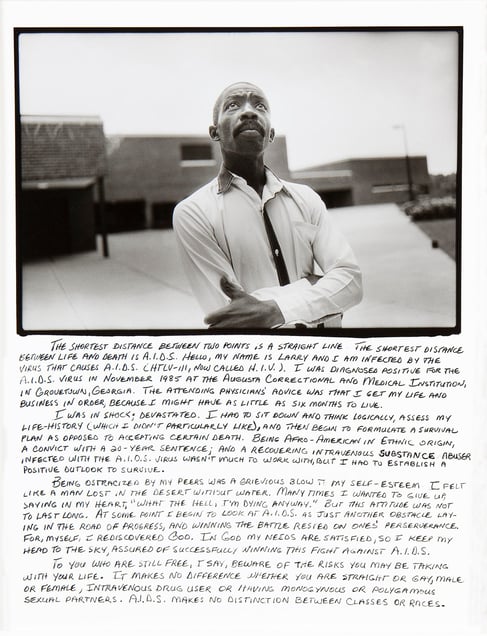 THE SHORTEST DISTANCE BETWEEN TWO POINTS IS A STRAIGHT LINE THE SHORTEST DISTANCE
BETWEEN LIFE AND DEATH IS A.I.D.S. HELLO, MY NAME IS LARRY AND I AM INFECTED BY THE
VIRUS THAT CAUSES A.I.D.S. (HTLV-III, NOW CALLED H.I.V.). I WAS DIAGNOSED POSITIVE FOR THE
A.I.D.S. VIRUS IN NOVEMBER 1985 AT THE AUGUSTA CORRECTIONAL AND MEDICAL INSTITUTION,
IN GROVETOWN, GEORGIA. THE ATTENDING PHYSICIANS' ADVICE WAS THAT I GET MY LIFE AND
BUSINESS IN ORDER, BECAUSE I MIGHT HAVE AS LITTLE AS SIX MONTHS TO LIVE.
I WAS IN SHOCK; DEVASTATED. I HAD TO SIT DOWN AND THINK LOGICALLY, ASSESS MY
LIFE-HISTORY (WHICH I DIDN'T PARTICULARLY LIKE), AND THEN BEGIN TO FORMULATE A SURVIVAL
PLAN AS OPPOSED TO ACCEPTING CERTAIN DEATH. BEING AFRO-AMERICAN IN ETHNIC ORIGIN,
A CONVICT WITH A 20-YEAR SENTENCE; AND A RECOVERING INTRAVENOUS SUBSTANCE ABUSER
INFECTED WITH THE A.I.D.S. VIRUS WASN'T MUCH TO WORK WITH, BUT I HAD TO ESTABLISH A
POSITIVE OUTLOOK TO SURVIVE.
BEING OSTRACIZED BY MY PEERS WAS A GRIEVIOUS BLOW TO MY SELF-ESTEEM. I FELT
LIKE A MAN LOST IN THE DESERT WITHOUT WATER. MANY TIMES I WANTED TO GIVE UP,
SAYING IN MY HEART, "WHAT THE HELL, I'M DYING, ANYWAY." BUT THIS ATTITUDE WAS NOT
TO LAST LONG. AT SOME POINT I BEGIN TO LOOK AT A.I.D.S. AS JUST ANOTHER OBSTACLE LAY-
ING IN THE ROAD OF PROGRESS, AND WINNING THE BATTLE RELIED ON ONES' PERSERVERANCE.
FOR, MYSELF, I REDISCOVERED GOD. IN GOD MY NEEDS ARE SATISFIED, SO I KEEP MY
HEAD TO THE SKY, ASSURED OF SUCCESSFULLY WINNING THIS FIGHT AGAINST A.I.D.S.
TO YOU WHO ARE STILL FREE, I SAY, BEWARE OF THE RISKS YOU MAY BE TAKING
WITH YOUR LIFE. IT MAKES NO DIFFERENCE WHETHER YOU ARE STRAIGHT OR GAY, MALE
OR FEMALE, INTRAVENOUS DRUG USER OR HAVING MONOGYNOUS OR POLYGAMOUS
SEXUAL PARTNERS. A.I.D.S. MAKES NO DISTINCTION BETWEEN CLASSES OR RACES.